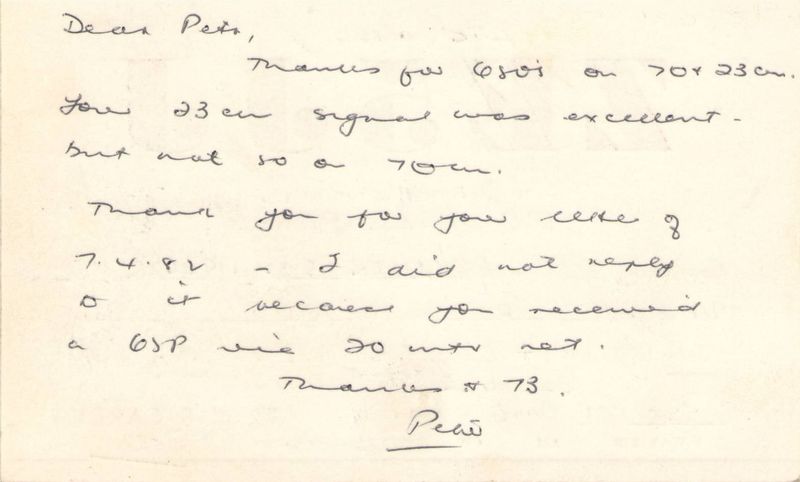 Dear Petr,
Thanks for QSO's on 70 & 23 cm.
Your 23 cm signal was excellent -
but not so on 70cm.
Thank you for your letter of
7.4.82 - I did not reply
to it because you received
a QSP via 20 mtr net.
Thanks & 73.
Peter